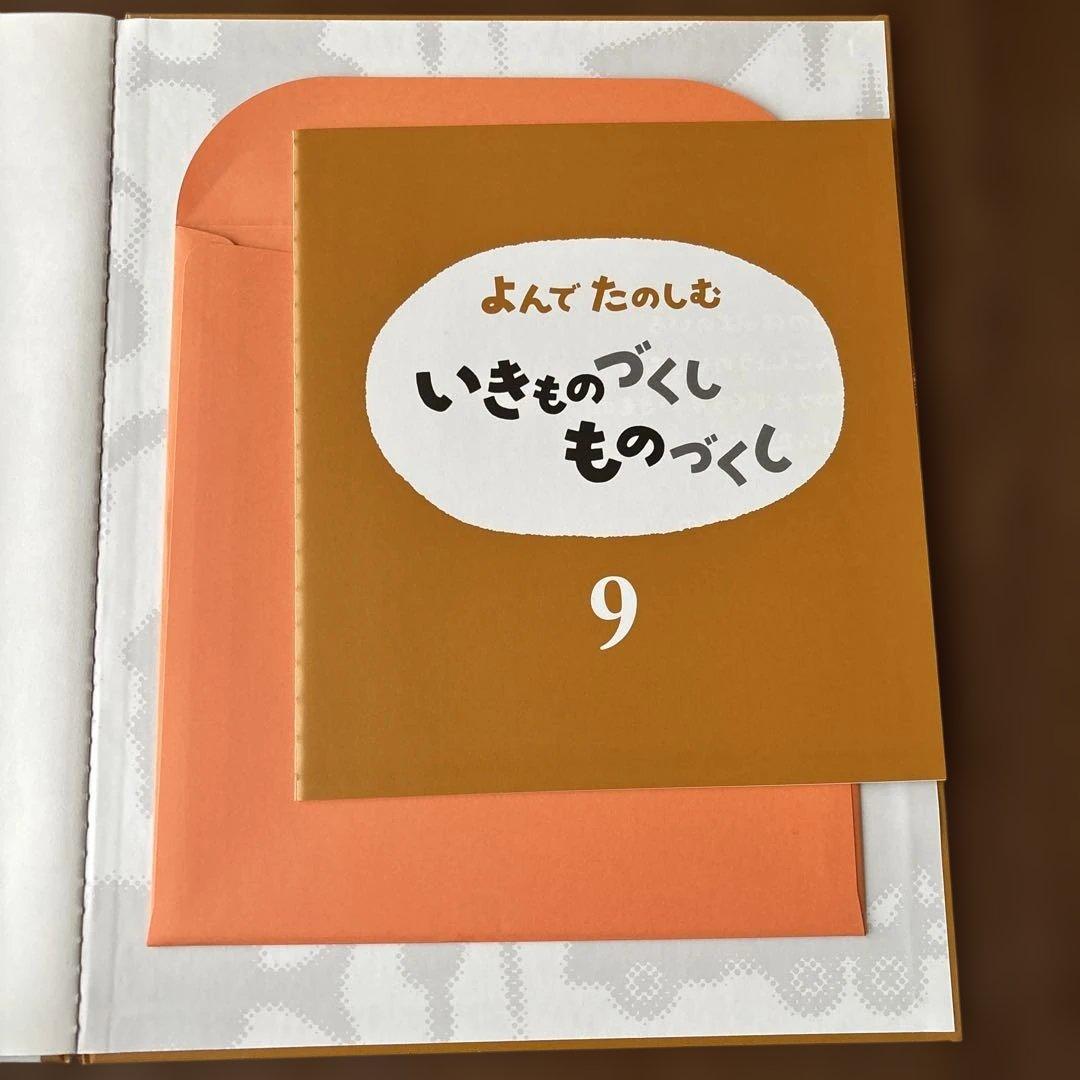 よんで たのしむ
いきものづくし
ものづくし
9